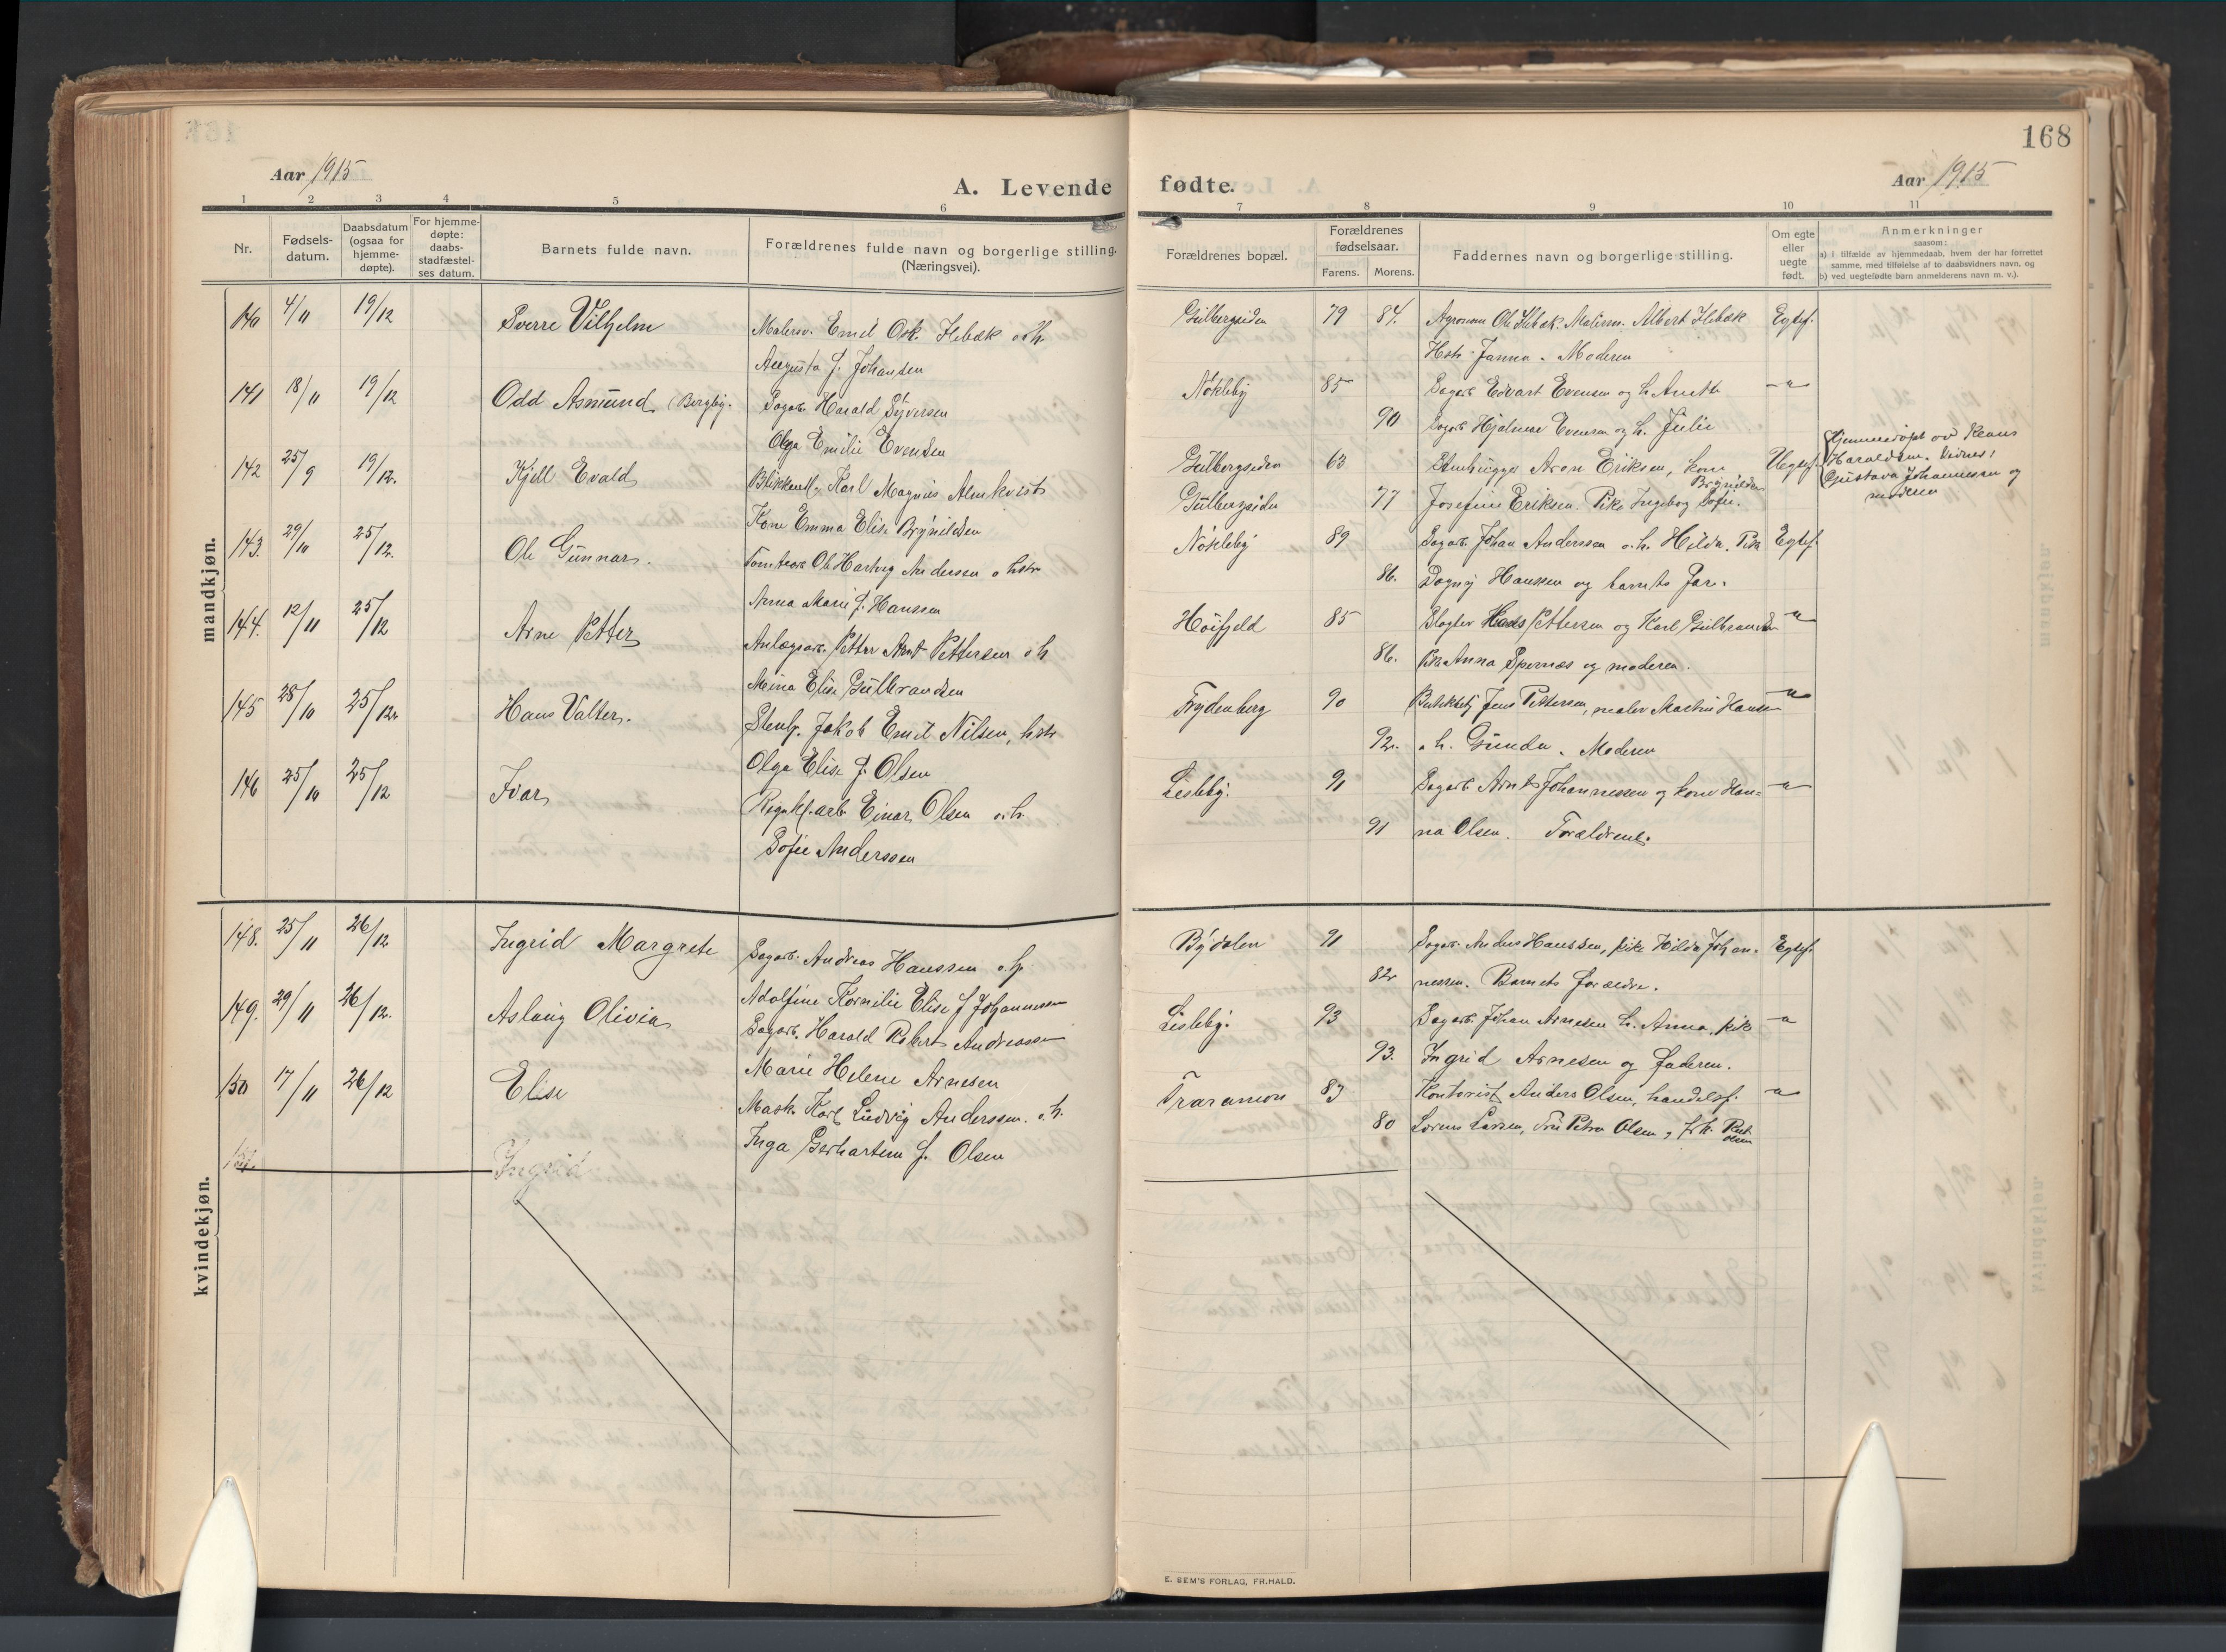 168
Aar 1915
A. Levende fødte.
Aar 1915
1 2 3 4 5 6 7 8 9 10 11
Nr.
Fødsels-
datum.
Daabsdatum
(ogsaa for
hjemme-
døpte).
For hjemme-
døpte:
daabs-
stadfæstel-
ses datum.
Barnets fulde navn.
Forældrenes fulde navn og borgerlige stilling.
(Næringsvei).
Forældrenes bopæl.
Forældrenes
fødselsaar.
Farens. Morens.
Faddernes navn og borgerlige stilling.
Om egte
eller
uegte
født.
Anmerkninger
saasom:
a) i tilfælde av hjemmedaab, hvem der har forrettet
samme, med tilføielse af to daabsvidners navn, og
b) ved uegtefødte barn anmelderens navn m. v.).
mandkjøn.
140 4/11 19/12 Sverre Vilhelm Malersv. Emil Osk. Holbæk o. h. Gulbergsiden 79 84. Agronom Ole Holbæk. Malerm. Albert Holbæk Egtef.
Augusta f. Johansen Hstr. Janna. Moderen
141 18/11 19/12 Odd Asmund (Bergby. Sagarb. Harald Syversen Nøkleby 85 Sagarb. Edvart Evensen og h. Anette -"-
Olga Emilie Evensen 90 Sagarb. Hjalmar Evensen og h. Julie
142 25/9 19/12. Kjell Evald Blikkensl. Karl Magnus Almkvist Gulbergsiden 63 Stenhugger Aron Eriksen, kone Uegtef.
Kone Emma Elise Brynildsen Gulbergsiden 77 Josefine Eriksen. Pike Ingeborg Sofie Brynildsen
Hjemmedøpt av Haraldsen. Vidner:
Gustava Johannessen og
moderen
143. 29/10 25/12. Ole Gunnar. Tomtearb. Ole Hartvig Andersen o. hstr Nøkleby 89 Sagarb. Johan Anderssen o. h. Hilda. Pike Egtef.
Anna Marie f. Hanssen 86. Dagny Hanssen og barnets far.
144. 12/11 25/12 Arne Petter Anlægsarb. Petter Arnt Pettersen o. h Høifjeld 85 Slagter Hans Pettersen og Karl Gulbrandsen -"-
Mina Elise Gulbrandsen 86. Pike Anna Spernæs og moderen.
145 28/10 25/12. Hans Valter. Stenh. Jakob Emil Nilsen, hstr Frydenberg 90 Jens Pettersen, maler Martin Hansen -"-
Olga Elise f. Olsen 92. o. h. Gunda. Moderen
146 25/10 25/12 Ivar arb. Einar Olsen o. h. Lisleby. 91 Sagarb. Arnt Johannessen og kone Han= -"-
Sofie Anderssen 91 na Olsen. Forældrene.
kvindekjøn.
148. 25/11 26/12 Ingrid Margrete Sagarb. Andreas Hanssen o. h Bydalen 91 Sagarb. Anders Hanssen, pike Hilda Johan- Egtef.
Adolfine Kornilie Elise f Johannessen 82 nessen. Barnets forældre.
149. 29/11 26/12. Aslaug Olivia Sagarb. Harald Robert Andreassen Lisleby. 93 Sagarb. Johan Arnesen h. Anna, pike -"-
Marie Helene Arnesen 93. Ingrid Arnesen og faderen.
150 17/11 26/12 Elise Mask. Karl Ludvig Anderssen. o. h. Traramon 83 Kontorist Anders Olsen, handelsf. -"-
Inga Gerhartine f. Olsen 80 Lorens Larsen, Fru Petra Olsen, frk. Rut
Olsen
151. Ingrid
E. SEM'S FORLAG, FR.HALD.